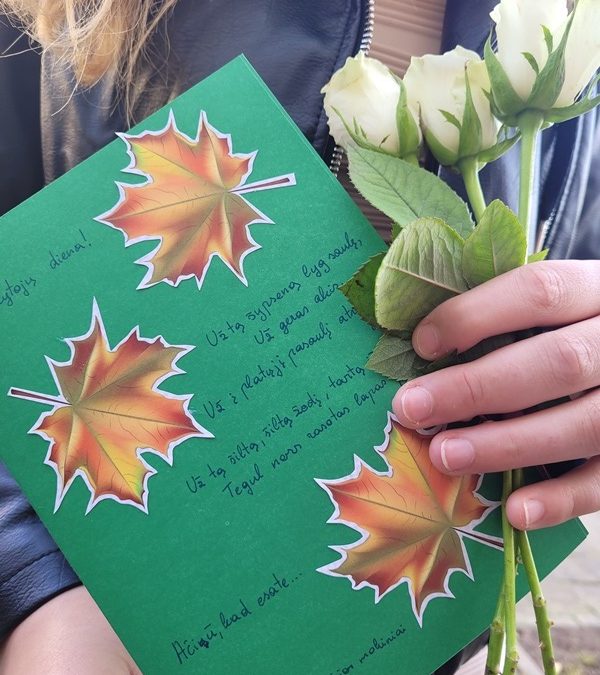 ytojų diena!
Už tą šypseną lyg saulę,
Už geras akis
Už į platųjį pasaulį atv
Už tą šiltą, šiltą žodį, tartą
Tegul nors rasotas lapas
Ačiųū, kad esate...
mokiniai